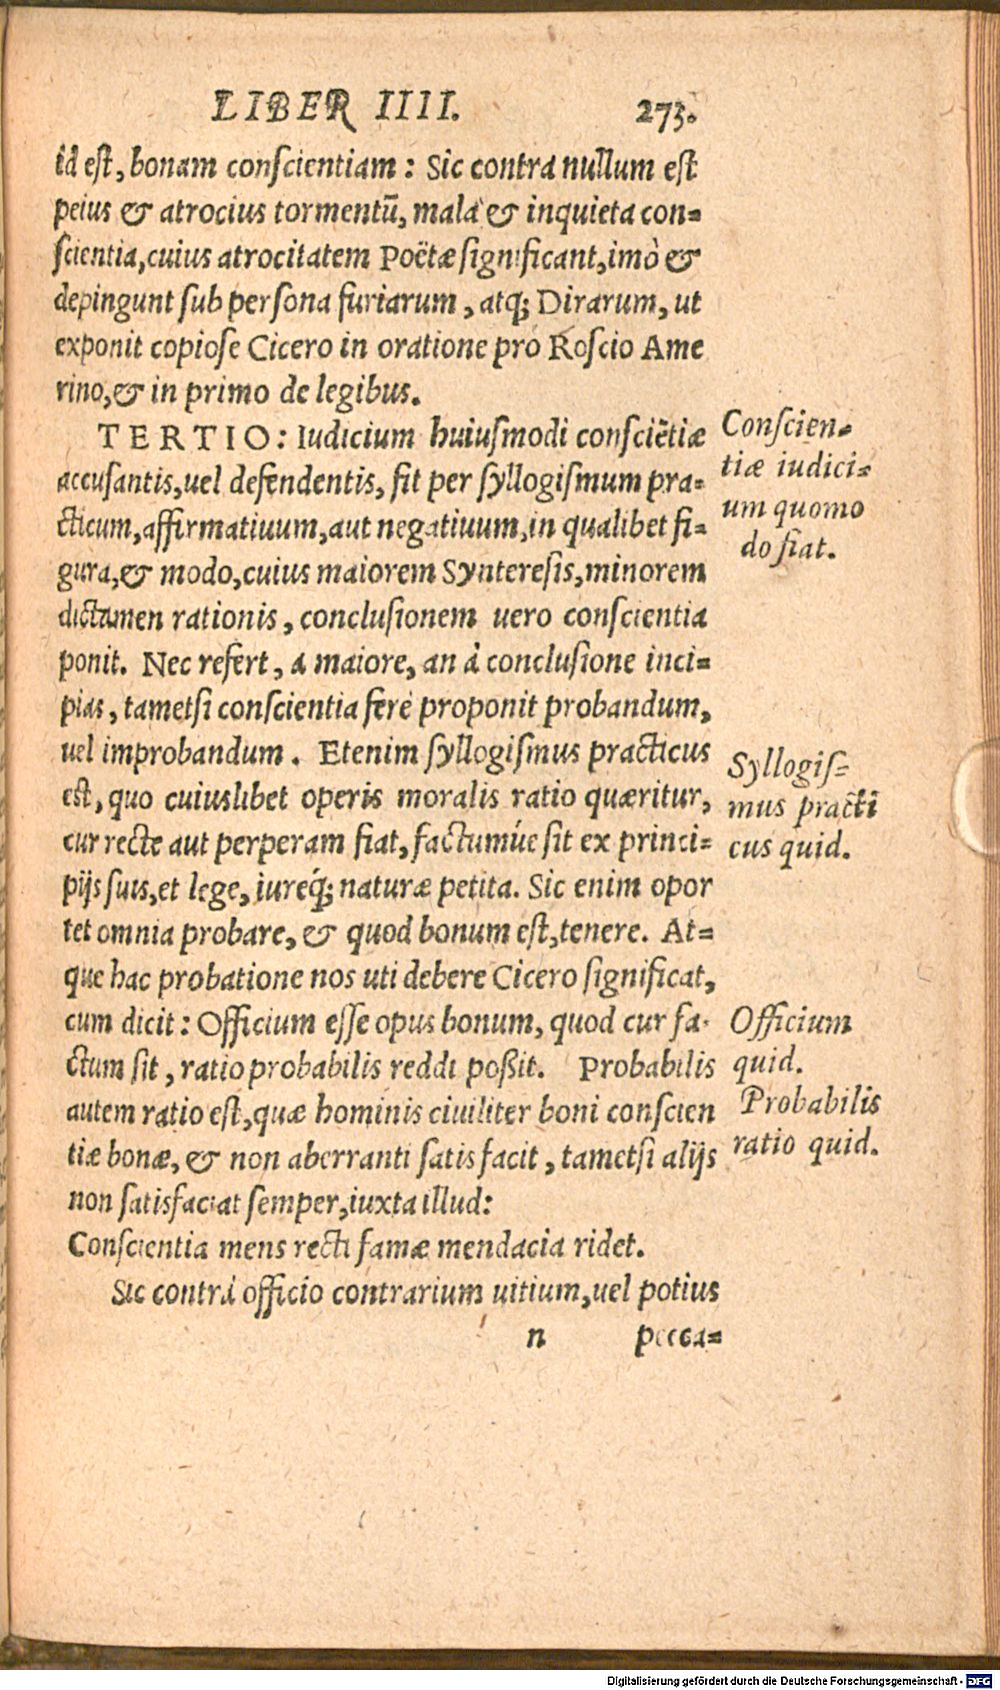 LIBER IIII. 273.
id est, bonam conscientiam: Sic contra nullum est
peius & atrocius tormentū, mala & inquieta con=
scientia, cuius atrocitatem Poëtæ significant, imò &
depingunt sub persona furiarum, atq; Dirarum, ut
exponit copiose Cicero in oratione pro Roscio Ame
rino, & in primo de legibus.
TERTIO: Iudicium huiusmodi consciētiæ
accusantis, uel defendentis, fit per syllogismum pra=
cticum, affirmatiuum, aut negatiuum, in qualibet fi=
gura, & modo, cuius maiorem Synteresis, minorem
dictamen rationis, conclusionem uero conscientia
ponit. Nec refert, à maiore, an à conclusione inci=
pias, tametsi conscientia ferè proponit probandum,
uel improbandum. Etenim syllogismus practicus
est, quo cuiuslibet operis moralis ratio quæritur,
cur recte aut perperam fiat, factumúe sit ex princi=
pijs suis, et lege, iureq́; naturæ petita. Sic enim opor
tet omnia probare, & quod bonum est, tenere. At=
que hac probatione nos uti debere Cicero significat,
cum dicit: Officium esse opus bonum, quod cur fa=
ctum sit, ratio probabilis reddi poßit. Probabilis
autem ratio est, quæ hominis ciuiliter boni conscien
tiæ bonæ, & non aberranti satisfacit, tametsi alijs
non satisfaciat semper, iuxta illud:
Conscientia mens recti famæ mendacia ridet.
Sic contrà officio contrarium uitium, uel potius
n pecca=
Conscien=
tiæ iudici=
um quomo
do fiat.
Syllogis=
mus practi
cus quid.
Officium
quid.
Probabilis
ratio quid.
Digitalisierung gefördert durch die Deutsche Forschungsgemeinschaft - DFG